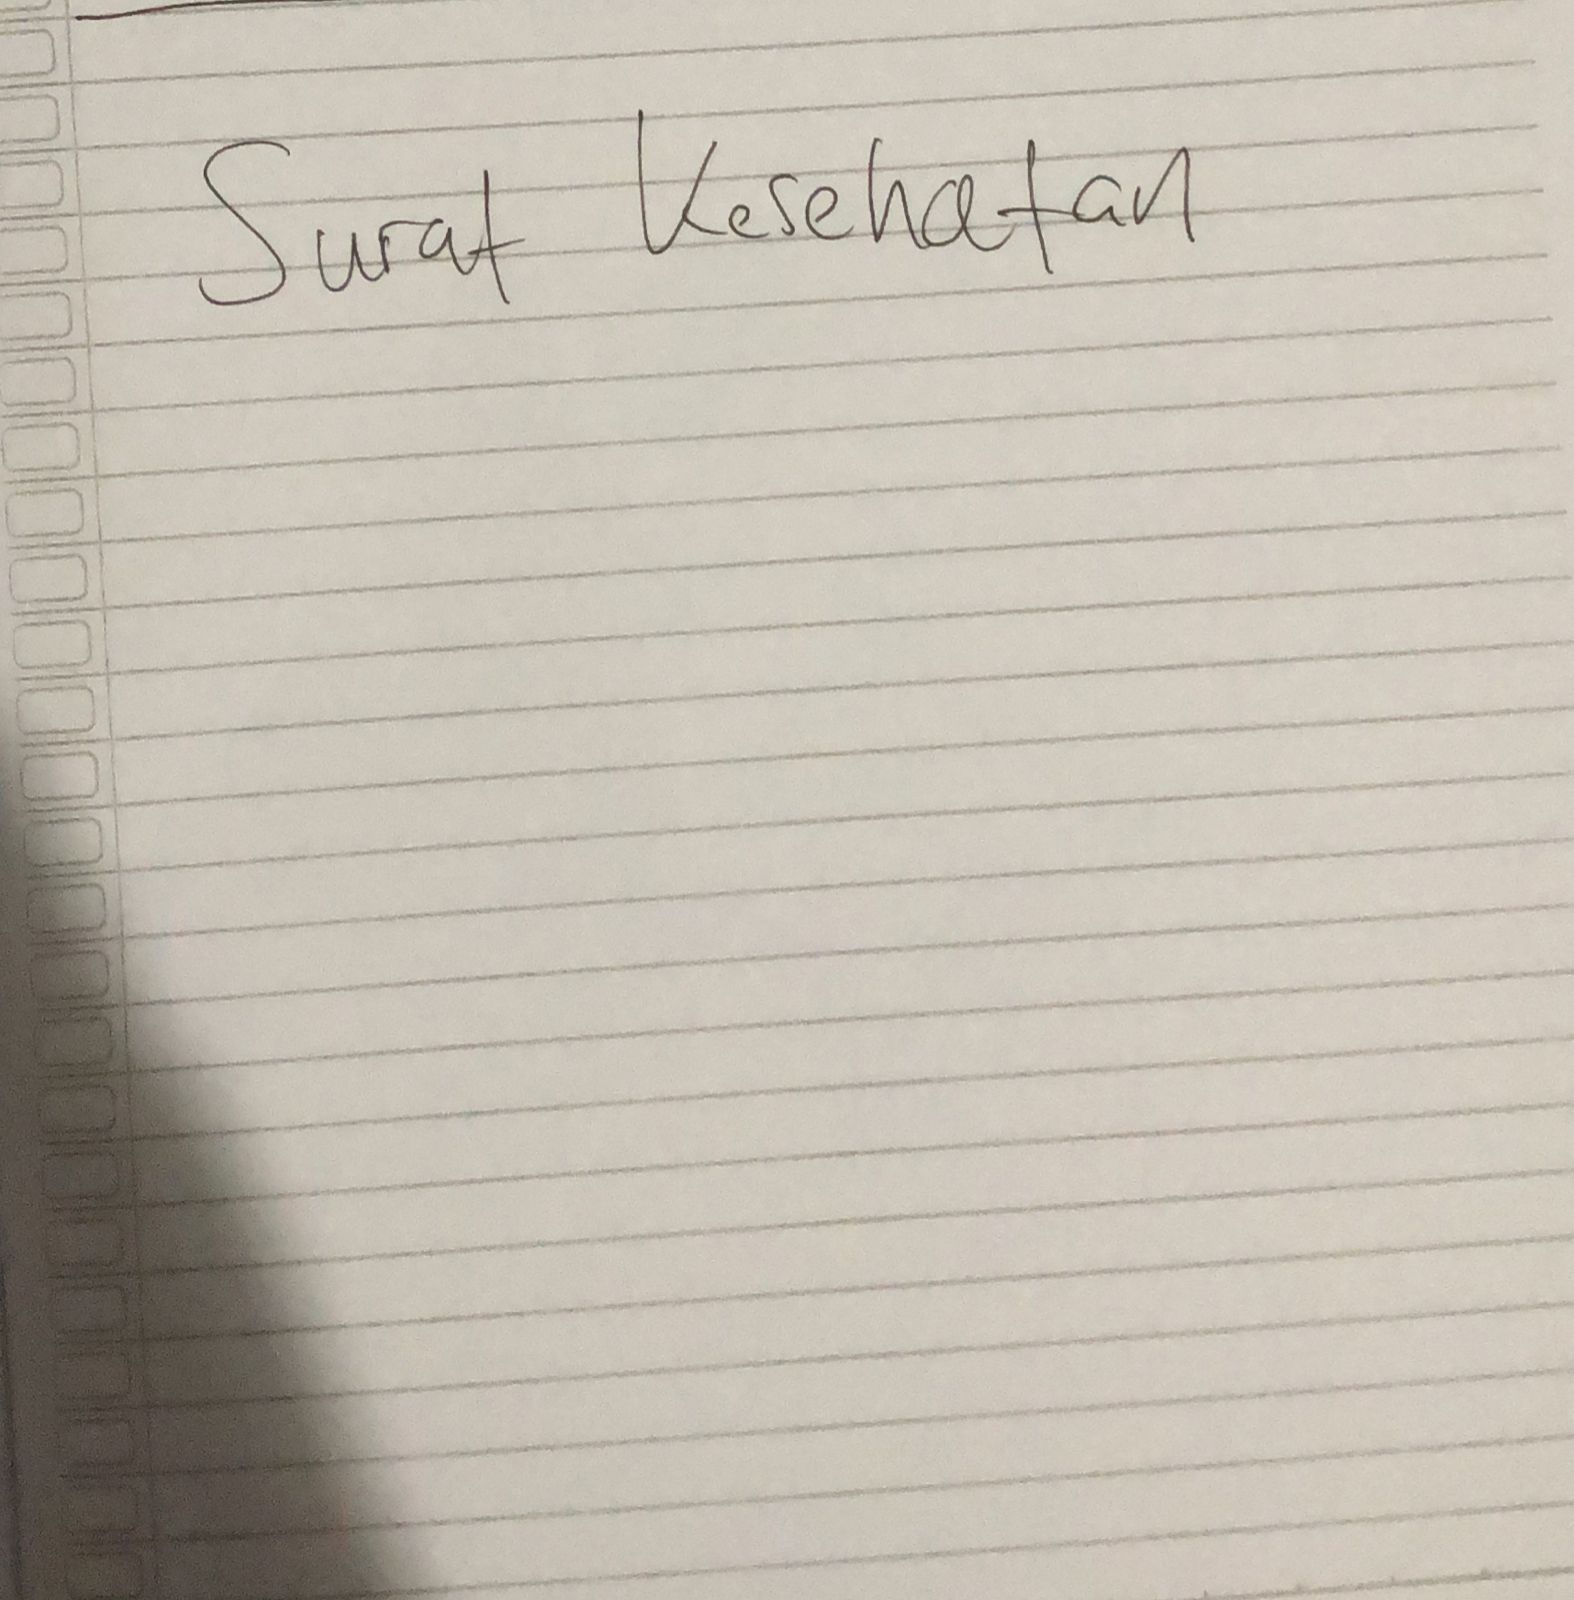 Surat Kesehatan